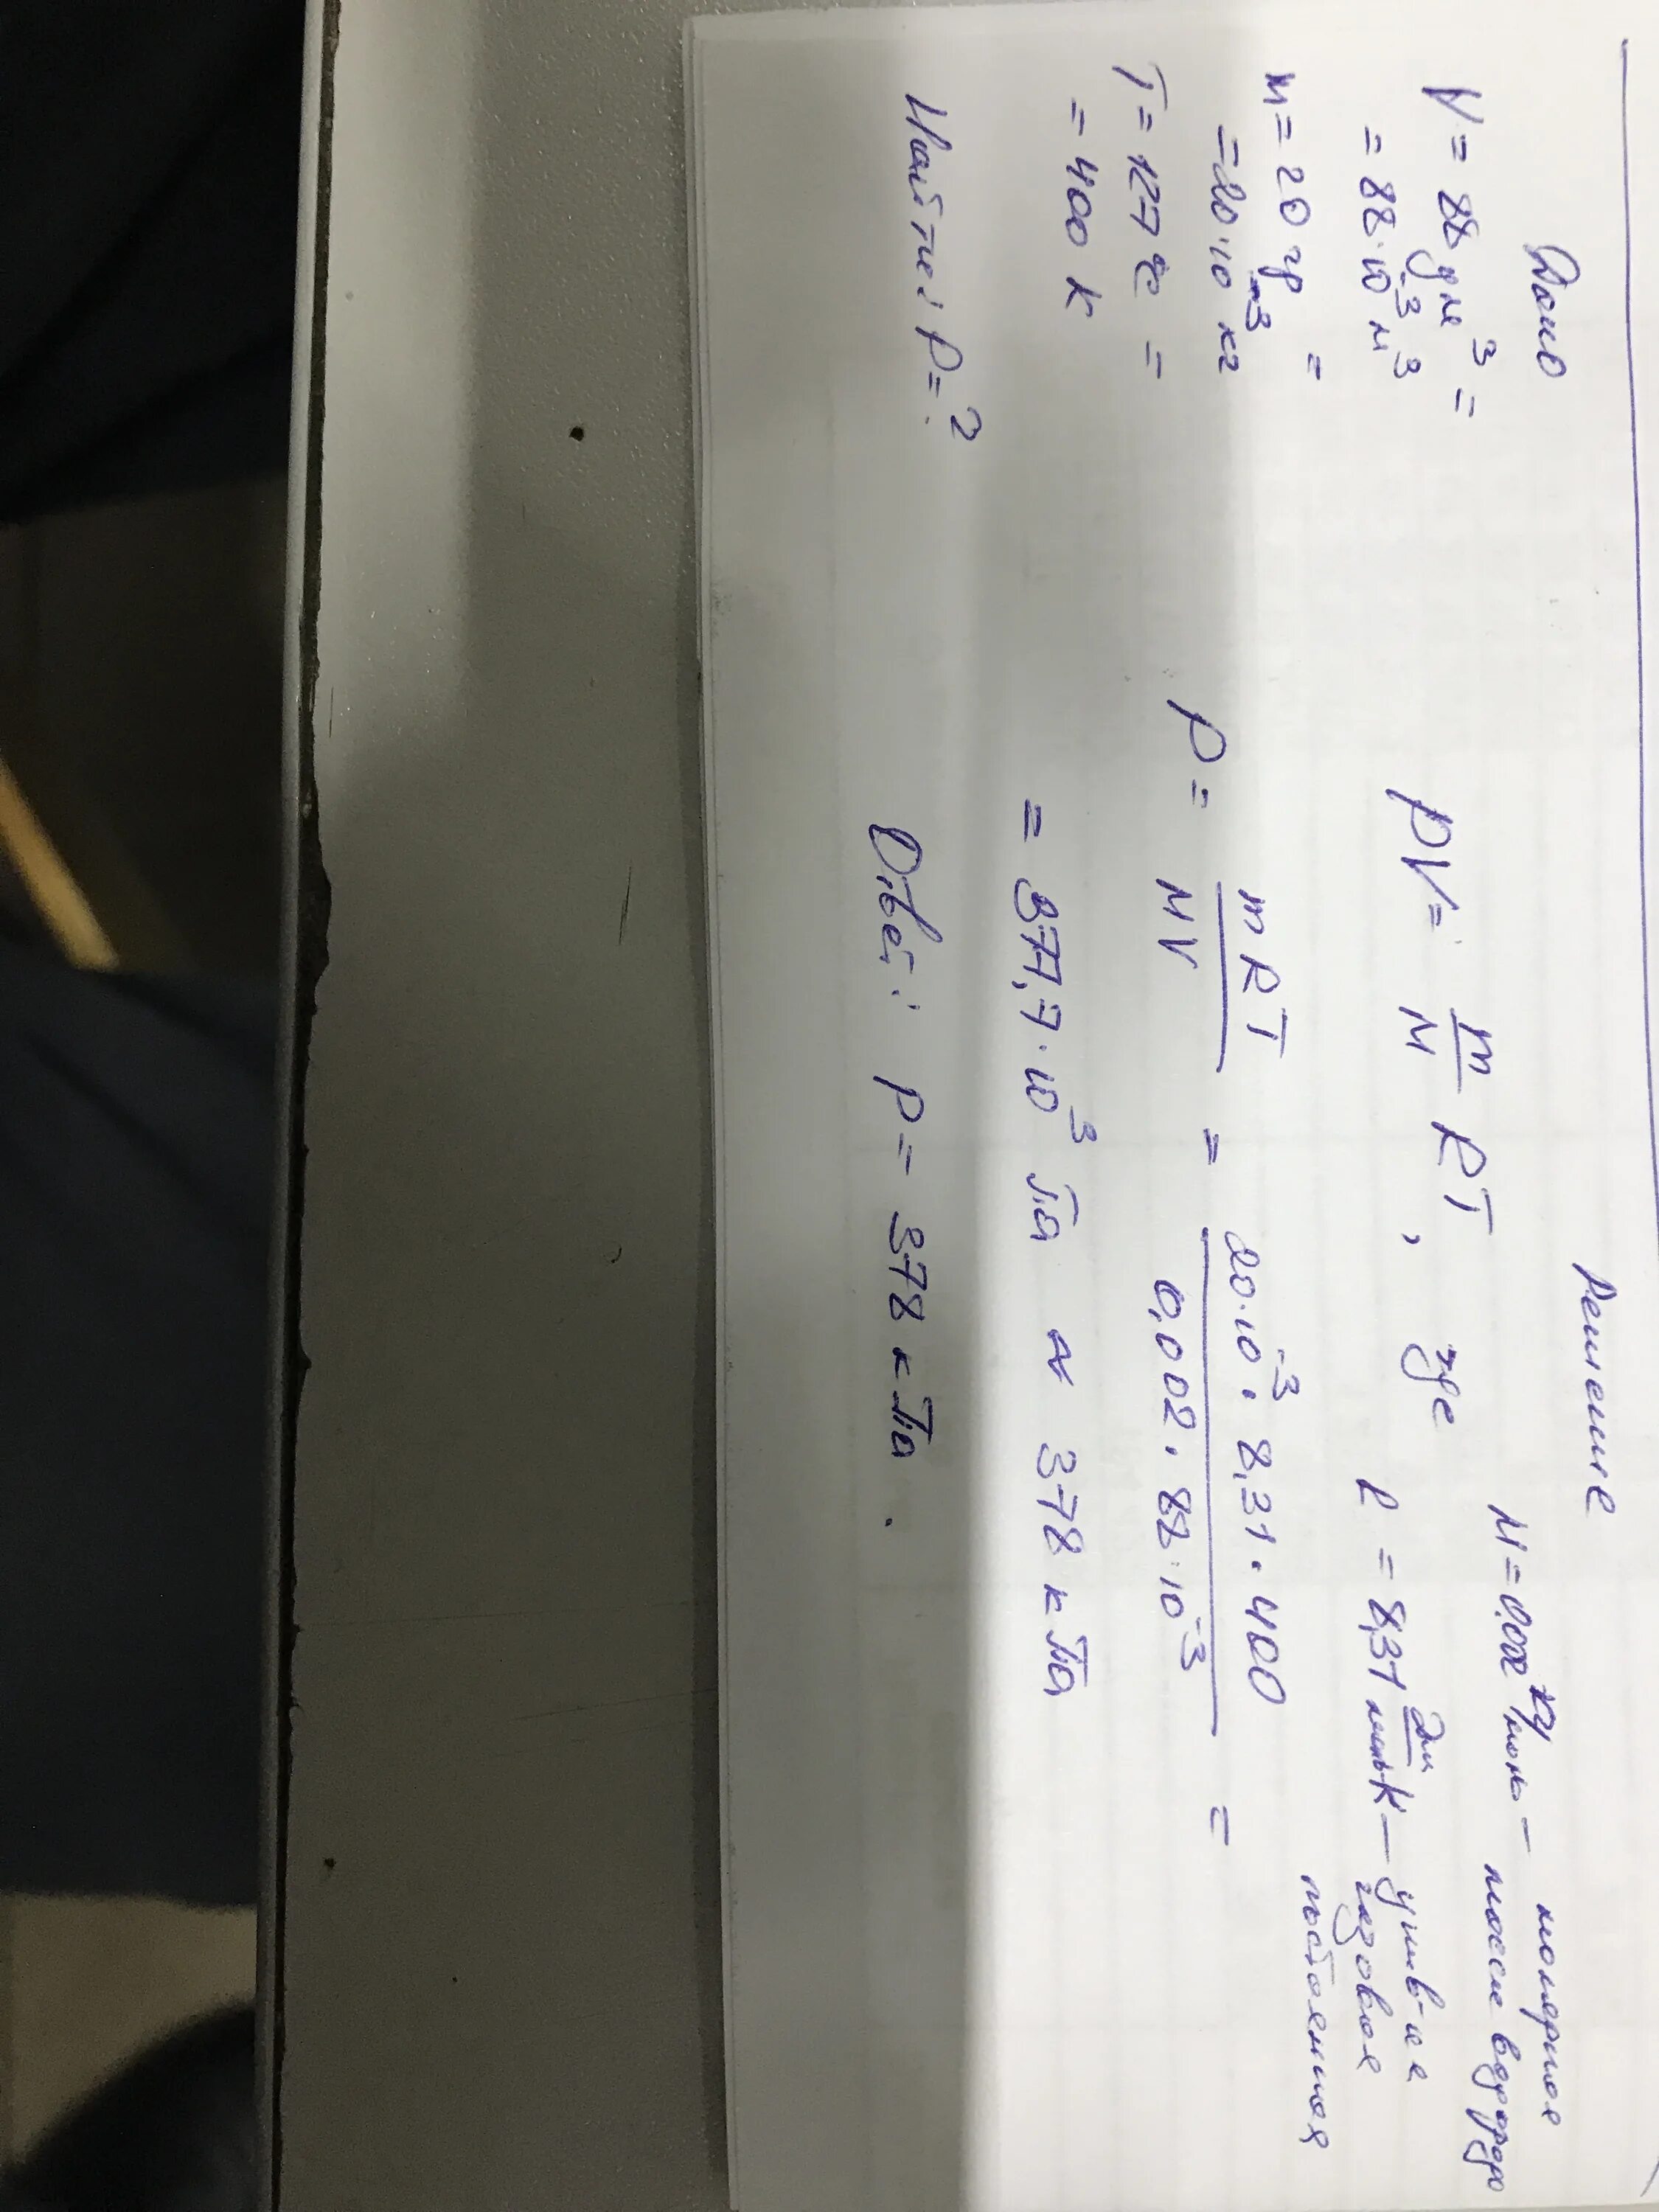 Дано
V = 88 дм³ =
= 88·10⁻³ м³
m = 20 гр =
= 20·10⁻³ кг
T = 127 °C =
= 400 К
Найти: P = ?
Решение
PV = m/M RT, где
M = 0,002 кг/моль — молярная
масса водорода
R = 8,31 Дж/моль·К — унив-ая
газовая
постоянная
P = mRT/MV = 20·10⁻³ · 8,31 · 400 / 0,002 · 88·10⁻³ =
= 377,7·10³ Па ≈ 378 кПа
Ответ: P = 378 кПа.